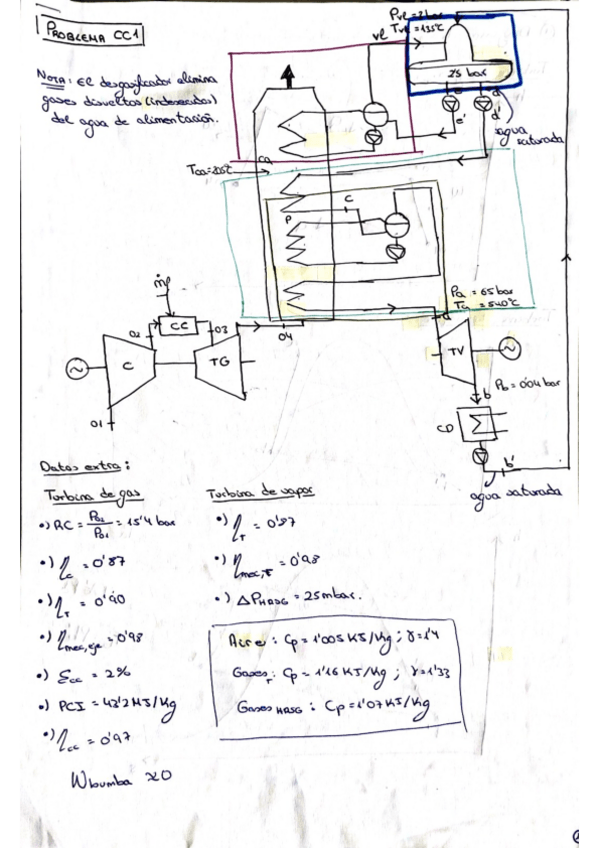 PROBLEMA CC1
NOTA: El desgasificador elimina
gases disueltos (indeseados)
del agua de alimentación.
Pvl = 3 bar
Tvl = 133°C
vl
25 bar
e
d
e'
d'
agua
saturada
ca
c
P
ṁf
CC
02
03
C
TG
04
01
Pa = 65 bar
Ta = 540°C
a
TV
b
Pb = 0'04 bar
CD
b'
agua saturada
Datos extra:
Turbina de gas
•) RC = P02/P01 = 15'4 bar
•) ηc = 0'87
•) ηT = 0'90
•) ηmec,eje = 0'98
•) εcc = 2%
•) PCI = 43'2 MJ/Kg
•) ηcc = 0'97
Wbumba ≈ 0
Turbina de vapor
•) ηT = 0'87
•) ηmec,T = 0'98
•) ΔPHRSG = 25 mbar.
Aire: Cp = 1'005 KJ/Kg ; γ = 1'4
GasesT : Cp = 1'16 KJ/Kg ; γ = 1'33
Gases HRSG : Cp = 1'07 KJ/Kg